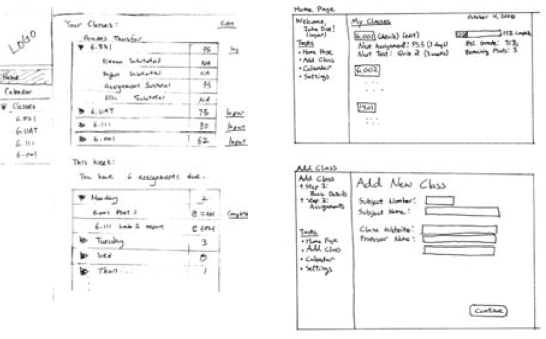 LOGO
Home
Calendar
Classes
6.831
6.UAT
6.111
6.001
Your Classes:
Edit
Grades Thusfar
6.831 95
Exams Subtotal NA
Project Subtotal NA
Assignment Subtotal 95
Subtotal NA
6.UAT 75 Input
6.111 80 Input
6.001 62 Input
This week:
You have 6 assignments due.
Monday 2
6.111 Lab 2 report
Tuesday 3
Wed 0
Thurs... 1
Home Page
Welcome,
John Doe!
(logout)
Tasks
• Home Page
• Add Class
• Calendar
• Settings
My Classes
6.001 (details) (edit)
Next Assignment: PS3 (2 days)
Next Test: Quiz 2 (3 weeks)
6.002
Add Class
Add Class
• Step 1:
Basic Details
• Step 2:
Assignments
Tasks
• Home Page
• Add Class
• Calendar
• Settings
Add New Class
Subject Number:
Subject Name:
Class Website:
Professor Name:
Continue